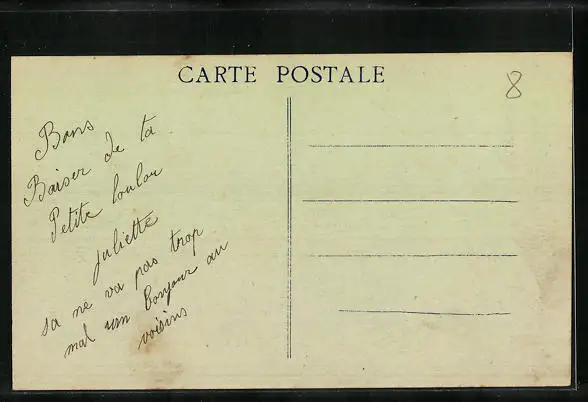 CARTE POSTALE
8
Bons
Baiser de ta
Petite loulou
juliette
sa ne va pas trop
mal um bonjour au
voisins